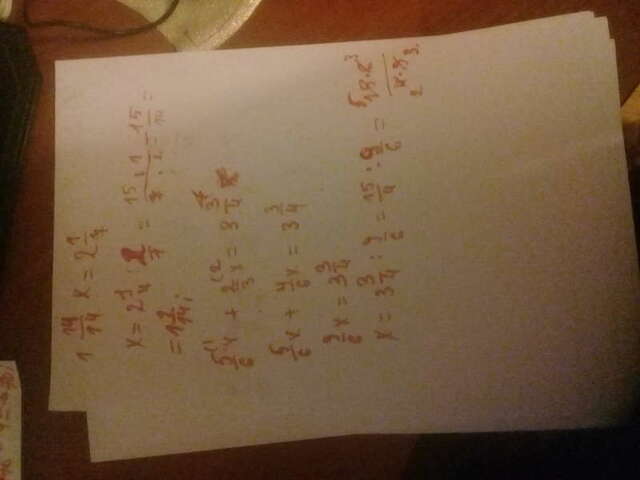 1 14/14 x = 2 1/7
x = 2 1/4 : 2/7 = 15 · 1 / 7 · 2 = 15/14 =
= 1 1/14;
5/6 x + 2/3 x = 3 3/4
5/6 x + 4/6 x = 3 3/4
9/6 x = 3 3/4
x = 3 3/4 : 9/6 = 15/4 : 9/6 =